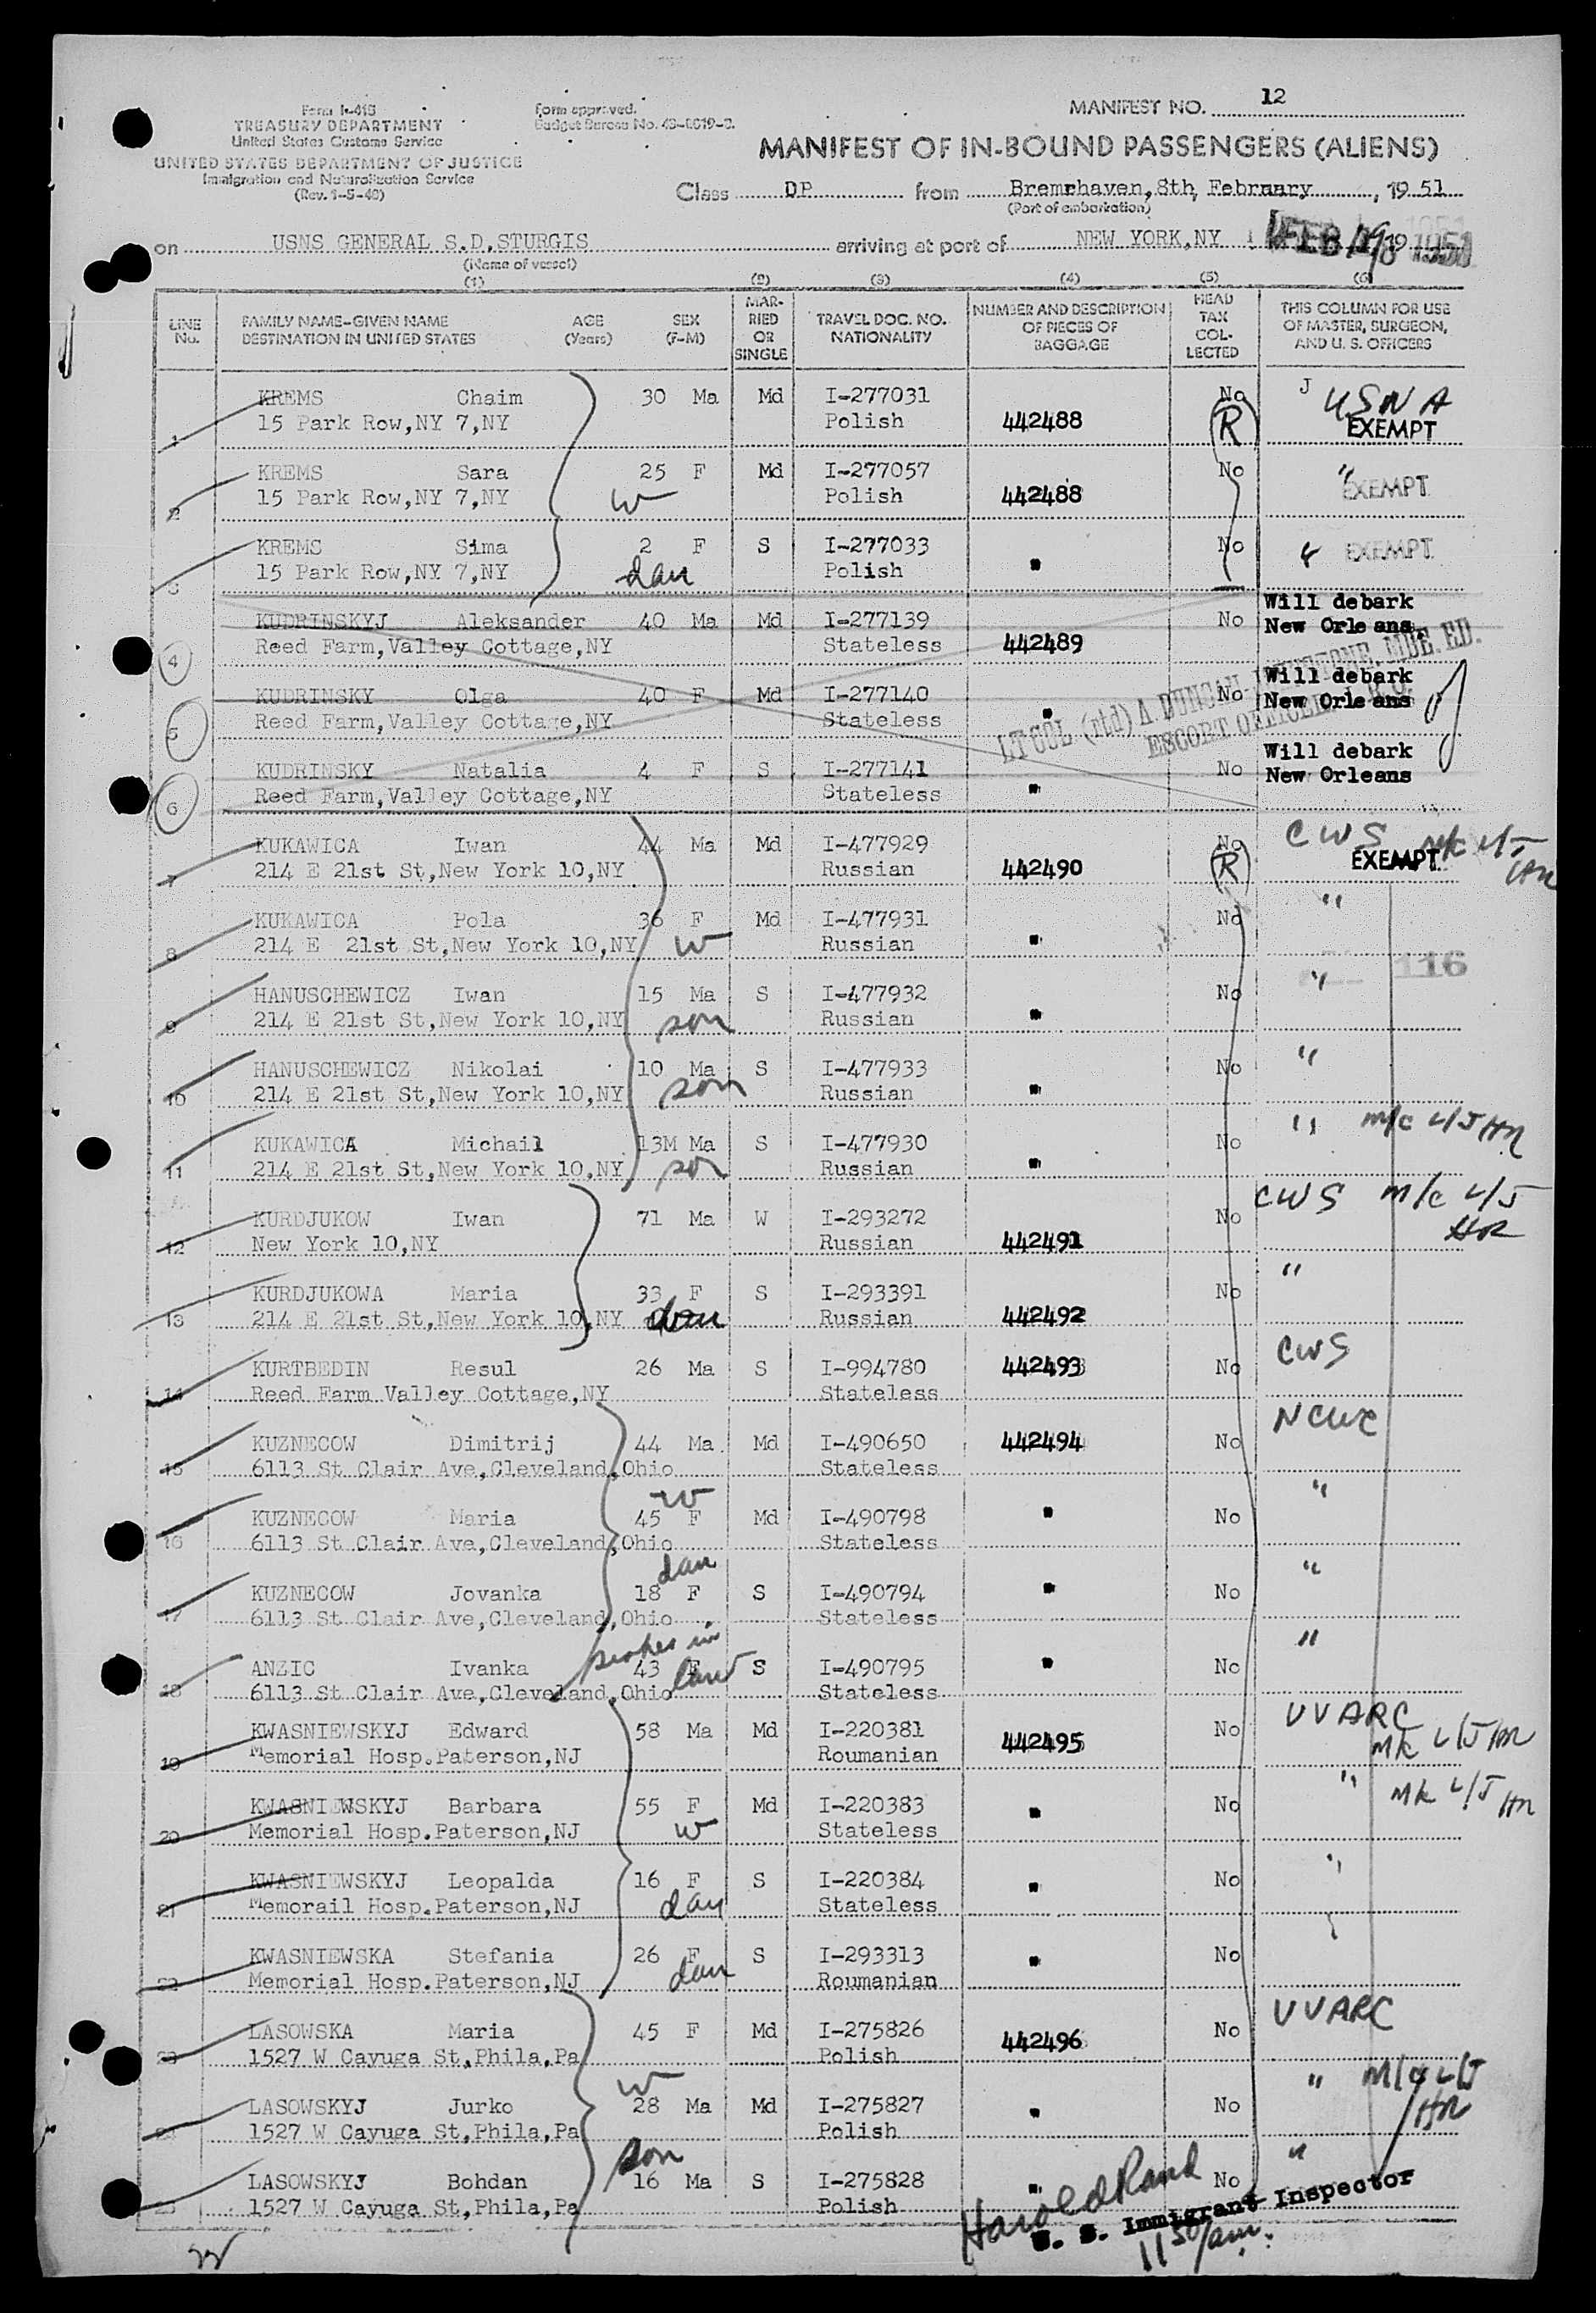 Form I-418
TREASURY DEPARTMENT
United States Customs Service
UNITED STATES DEPARTMENT OF JUSTICE
Immigration and Naturalization Service
(Rev. 1-5-48)
Form approved.
Budget Bureau No. 43-R019-2.
MANIFEST NO. 12
MANIFEST OF IN-BOUND PASSENGERS (ALIENS)
Class DP from Bremrhaven, 8th, February, 1951
(Port of embarkation)
on USNS GENERAL S.D.STURGIS arriving at port of NEW YORK,NY FEB 19 1951
(Name of vessel)
(1) (2) (3) (4) (5) (6)
LINE No. FAMILY NAME-GIVEN NAME DESTINATION IN UNITED STATES AGE (Years) SEX (F-M) MARRIED OR SINGLE TRAVEL DOC. NO. NATIONALITY NUMBER AND DESCRIPTION OF PIECES OF BAGGAGE HEAD TAX COLLECTED THIS COLUMN FOR USE OF MASTER, SURGEON, AND U. S. OFFICERS
1 KREMS Chaim 30 Ma Md I-277031 No J USNA
15 Park Row,NY 7,NY Polish 442488 R EXEMPT
2 KREMS Sara 25 F Md I-277057 No "
15 Park Row,NY 7,NY w Polish 442488 EXEMPT
3 KREMS Sima 2 F S I-277033 No EXEMPT
15 Park Row,NY 7,NY dau Polish "
4 KUDRINSKYJ Aleksander 40 Ma Md I-277139 No Will debark New Orleans
Reed Farm,Valley Cottage,NY Stateless 442489
LT COL (rtd) A. DUNCAN- MBE. ED.
ESCORT OFFICER
5 KUDRINSKY Olga 40 F Md I-277140 No Will debark New Orleans
Reed Farm,Valley Cottage,NY Stateless "
6 KUDRINSKY Natalia 4 F S I-277141 No Will debark New Orleans
Reed Farm,Valley Cottage,NY Stateless "
7 KUKAWICA Iwan 44 Ma Md I-477929 No CWS M/c L/J HR
214 E 21st St,New York 10,NY Russian 442490 R EXEMPT
8 KUKAWICA Pola 36 F Md I-477931 No "
214 E 21st St,New York 10,NY w Russian "
116
9 HANUSCHEWICZ Iwan 15 Ma S I-477932 No "
214 E 21st St,New York 10,NY son Russian "
10 HANUSCHEWICZ Nikolai 10 Ma S I-477933 No "
214 E 21st St,New York 10,NY son Russian "
11 KUKAWICA Michail 13M Ma S I-477930 No " M/c L/J HR
214 E 21st St,New York 10,NY son Russian "
12 KURDJUKOW Iwan 71 Ma W I-293272 No CWS M/c L/J HR
New York 10,NY Russian 442491
13 KURDJUKOWA Maria 33 F S I-293391 No "
214 E 21st St,New York 10,NY dau Russian 442492
14 KURTBEDIN Resul 26 Ma S I-994780 442493 No CWS
Reed Farm Valley Cottage,NY Stateless
15 KUZNECOW Dimitrij 44 Ma. Md I-490650 442494 No NCWC
6113 St Clair Ave,Cleveland,Ohio Stateless
w
16 KUZNECOW Maria 45 F Md I-490798 " No "
6113 St Clair Ave,Cleveland,Ohio Stateless
dau
17 KUZNECOW Jovanka 18 F S I-490794 " No "
6113 St Clair Ave,Cleveland,Ohio Stateless
in law
18 ANZIC Ivanka 43 F S I-490795 " No "
6113 St Clair Ave,Cleveland,Ohio Stateless
19 KWASNIEWSKYJ Edward 58 Ma Md I-220381 No UUARC
Memorial Hosp.Paterson,NJ Roumanian 442495 M/c L/J HR
20 KWASNIEWSKYJ Barbara 55 F Md I-220383 No " M/c L/J HR
Memorial Hosp.Paterson,NJ w Stateless "
21 KWASNIEWSKYJ Leopalda 16 F S I-220384 No "
Memorail Hosp.Paterson,NJ dau Stateless "
22 KWASNIEWSKA Stefania 26 F S I-293313 No
Memorial Hosp.Paterson,NJ dau Roumanian "
23 LASOWSKA Maria 45 F Md I-275826 No UUARC
1527 W Cayuga St,Phila,Pa Polish 442496
w
24 LASOWSKYJ Jurko 28 Ma Md I-275827 No " M/c L/J HR
1527 W Cayuga St,Phila,Pa Polish "
son
25 LASOWSKYJ Bohdan 16 Ma S I-275828 No "
1527 W Cayuga St,Phila,Pa Polish "
Harold Rand
U. S. Immigrant Inspector
11 50/am.